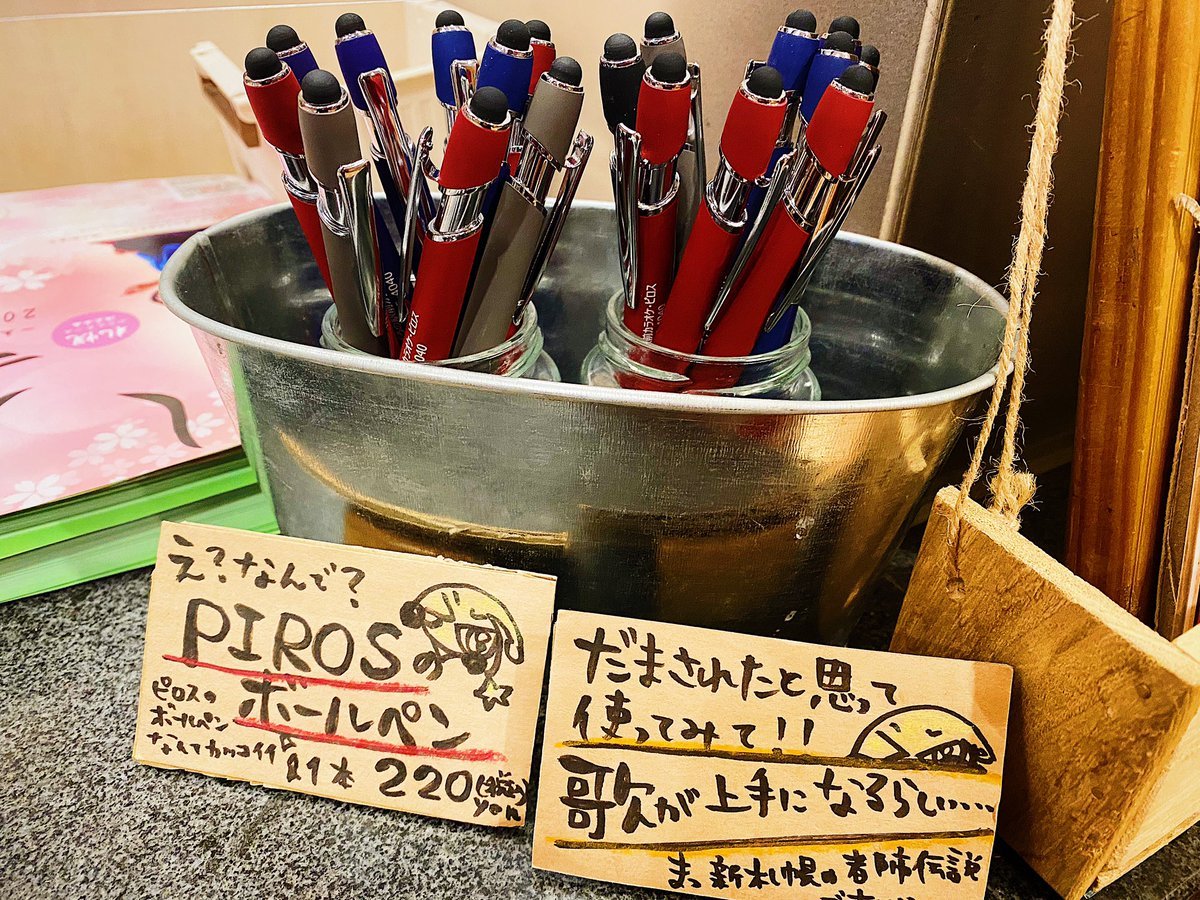 え?なんで?
PIROSの
ボールペン
ピロスの
ボールペン
なんてカッコイイ
1本 220(税込)
yen
だまされたと思って
使ってみて!!
歌が上手になるらしい....
新札幌の都市伝説
カラオケ・ピロス
4040
040
札幌